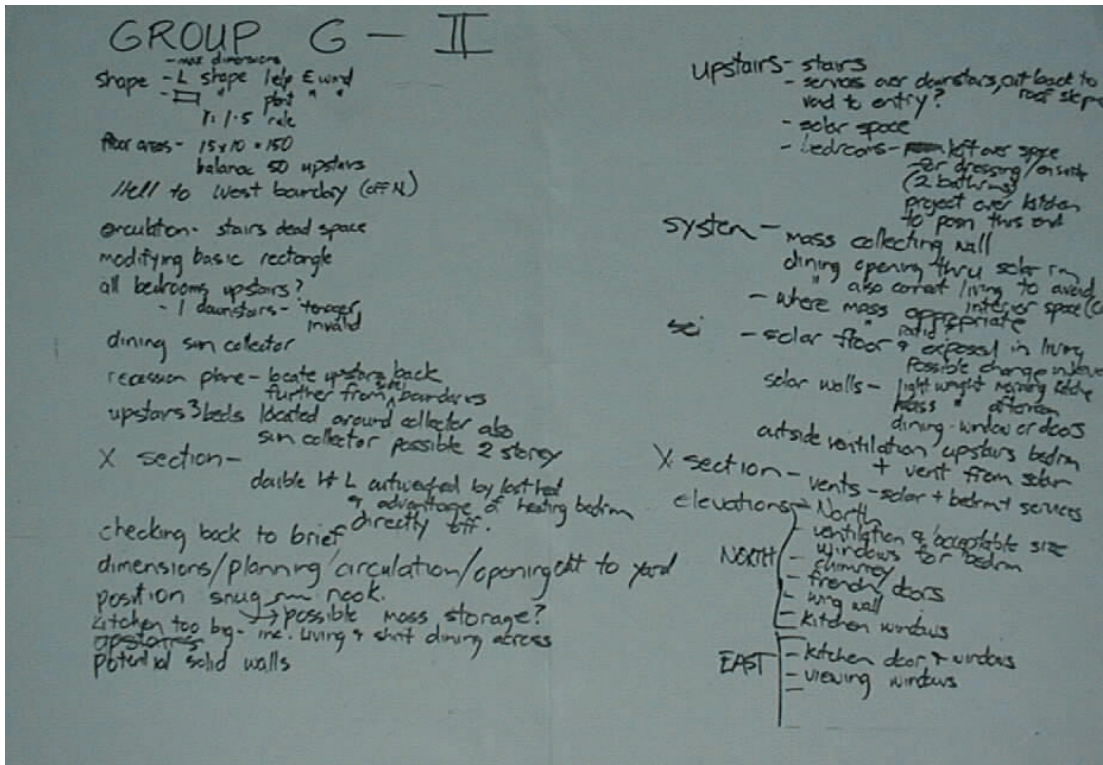 GROUP G - II
- max dimensions
shape - L shape help E wind
- " "
1:1.5 rule
floor areas - 15x10 = 150
balance 50 upstairs
to West bounday (off N)
circulation - stairs dead space
modifying basic rectangle
all bedrooms upstairs?
- 1 downstairs - teenager
invalid
dining sun collector
recession plane - locate upstairs back
further from boundaries
upstairs 3 beds located around collector also
sun collector possible 2 storey
X section -
double Ht L outweighed by lost heat
& advantage of heating bedrm
directly off.
checking back to brief
dimensions/planning/circulation/opening out to yard
position snug nook.
→ possible mass storage?
kitchen too big - inc. living & shift dining across
potential solid walls
upstairs - stairs
- services over downstairs, cut back to
roof slope
void to entry?
- solar space
- bedrooms - left over space
for dressing/ensuite
(2 bathrms)
project over kitchen
to posn this end
system - mass collecting wall
dining opening thru solar rm
" also connect living to avoid
interior space
- where mass appropriate
- solar floor & exposed in living
possible change in
solar walls - light weight morning
mass " afternoon
dining - window or doors
outside ventilation upstairs bedrm
+ vent from solar
X section - vents - solar + bedrm + services
elevations - North
NORTH
ventilation & acceptable size
- windows for bedrm
- chimney
- french doors
- wing wall
- kitchen windows
EAST
- kitchen door & windows
- viewing windows
-